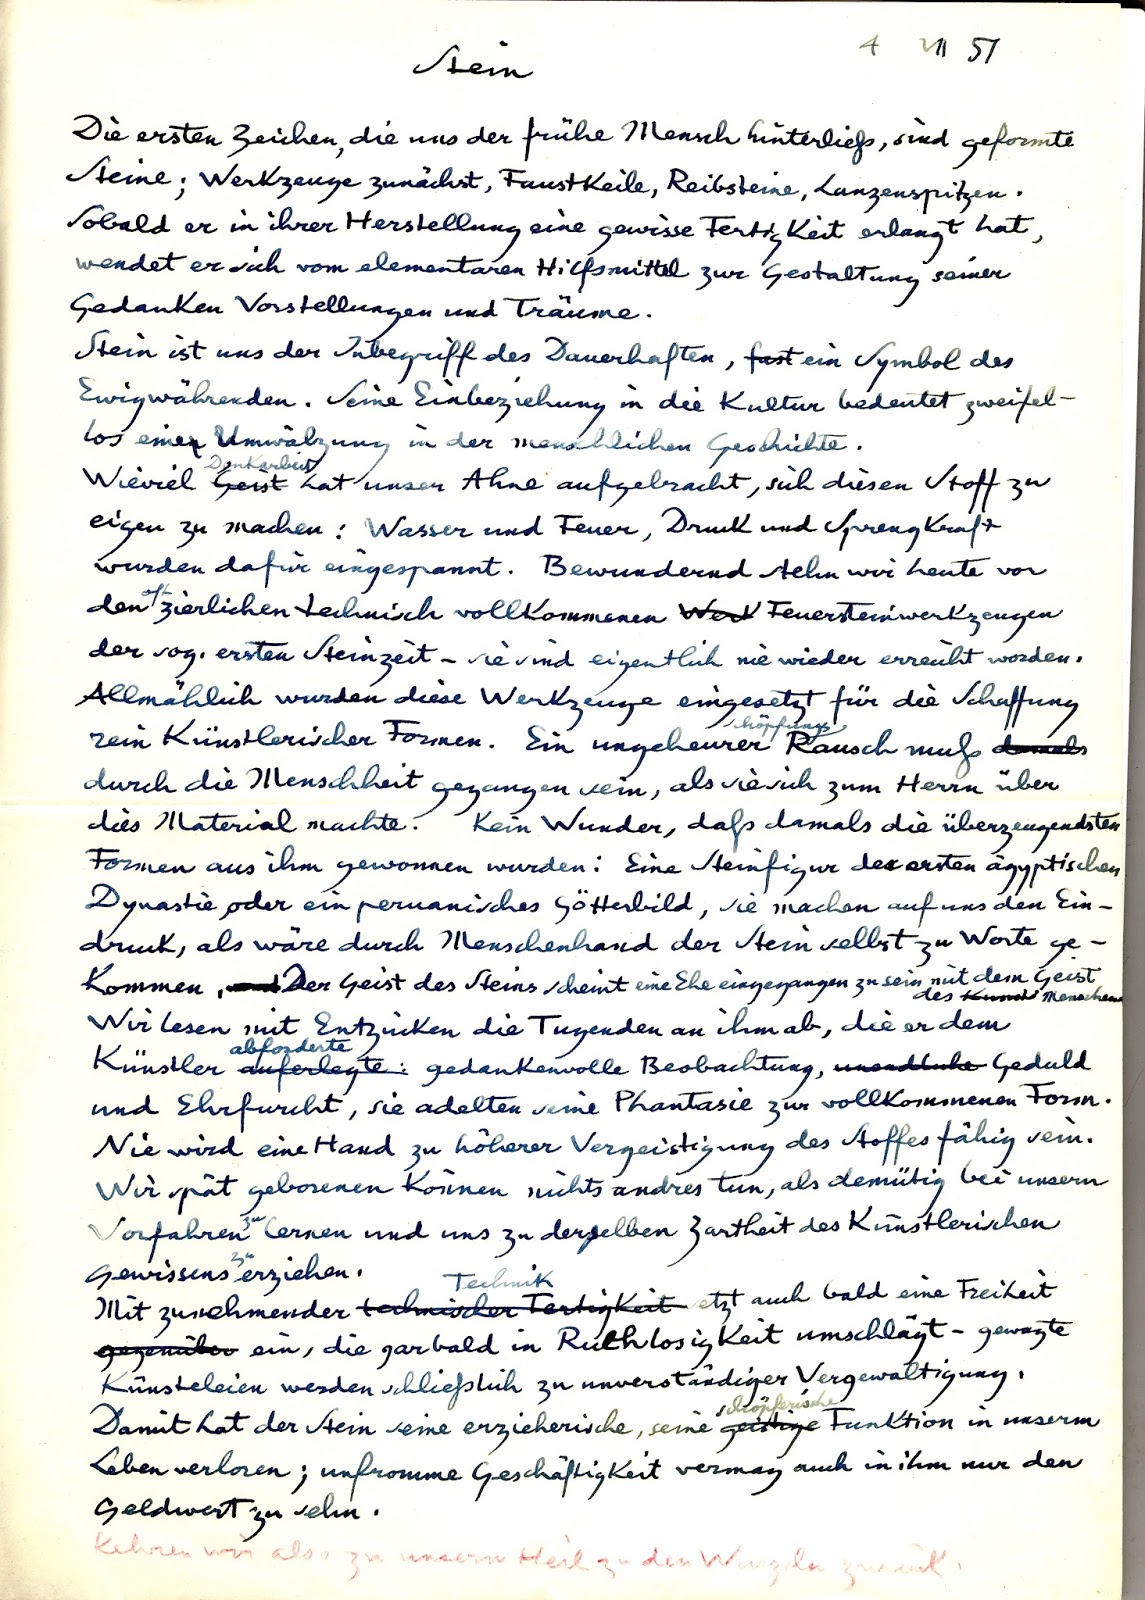 4 VII 51
Stein
Die ersten Zeichen, die uns der frühe Mensch hinterließ, sind geformte
Steine; Werkzeuge zunächst, Faustkeile, Reibsteine, Lanzenspitzen.
Sobald er in ihrer Herstellung eine gewisse Fertigkeit erlangt hat,
wendet er sich vom elementaren Hilfsmittel zur Gestaltung seiner
Gedanken Vorstellungen und Träume.
Stein ist uns der Inbegriff des Dauerhaften, fast ein Symbol des
Ewigwährenden. Seine Einbeziehung in die Kultur bedeutet zweifel-
los eine Umwälzung in der menschlichen Geschichte.
Denkarbeit
Wieviel Geist hat unser Ahne aufgebracht, sich diesen Stoff zu
eigen zu machen: Wasser und Feuer, Druck und Sprengkraft
wurden dafür eingespannt. Bewundernd stehn wir heute vor
den oft zierlichen technisch vollkommenen Werk Feuersteinwerkzeugen
der sog. ersten Steinzeit – sie sind eigentlich nie wieder erreicht worden.
Allmählich wurden diese Werkzeuge eingesetzt für die Schaffung
rein künstlerischer Formen. Ein ungeheurer Schöpfungs Rausch muß damals
durch die Menschheit gegangen sein, als sie sich zum Herrn über
dies Material machte. Kein Wunder, daß damals die überzeugendsten
Formen aus ihm gewonnen wurden: Eine Steinfigur der ersten ägyptischen
Dynastie oder ein peruanisches Götterbild, sie machen auf uns den Ein-
druck, als wäre durch Menschenhand der Stein selbst zu Worte ge-
kommen, und Der Geist des Steins scheint eine Ehe eingegangen zu sein mit dem Geist
des Kunst Menschen
Wir lesen mit Entzücken die Tugenden an ihm ab, die er dem
abforderte
Künstler auferlegte: gedankenvolle Beobachtung, unendliche Geduld
und Ehrfurcht, sie adelten seine Phantasie zur vollkommenen Form.
Nie wird eine Hand zu höherer Vergeistigung des Stoffes fähig sein.
Wir spät geborenen können nichts andres tun, als demütig bei unsern
Vorfahren zu lernen und uns zu derselben Zartheit des künstlerischen
Gewissens zu erziehen.
Technik
Mit zunehmender technischer Fertigkeit setzt auch bald eine Freiheit
gegenüber ein, die garbald in Ruchlosigkeit umschlägt – gewagte
Künsteleien werden schließlich zu unverständiger Vergewaltigung.
schöpferische
Damit hat der Stein seine erzieherische, seine geistige Funktion in unserm
Leben verloren; unfromme Geschäftigkeit vermag auch in ihm nur den
Geldwert zu sehn.
Kehren wir also zu unserm Heil zu den Wurzeln zurück.